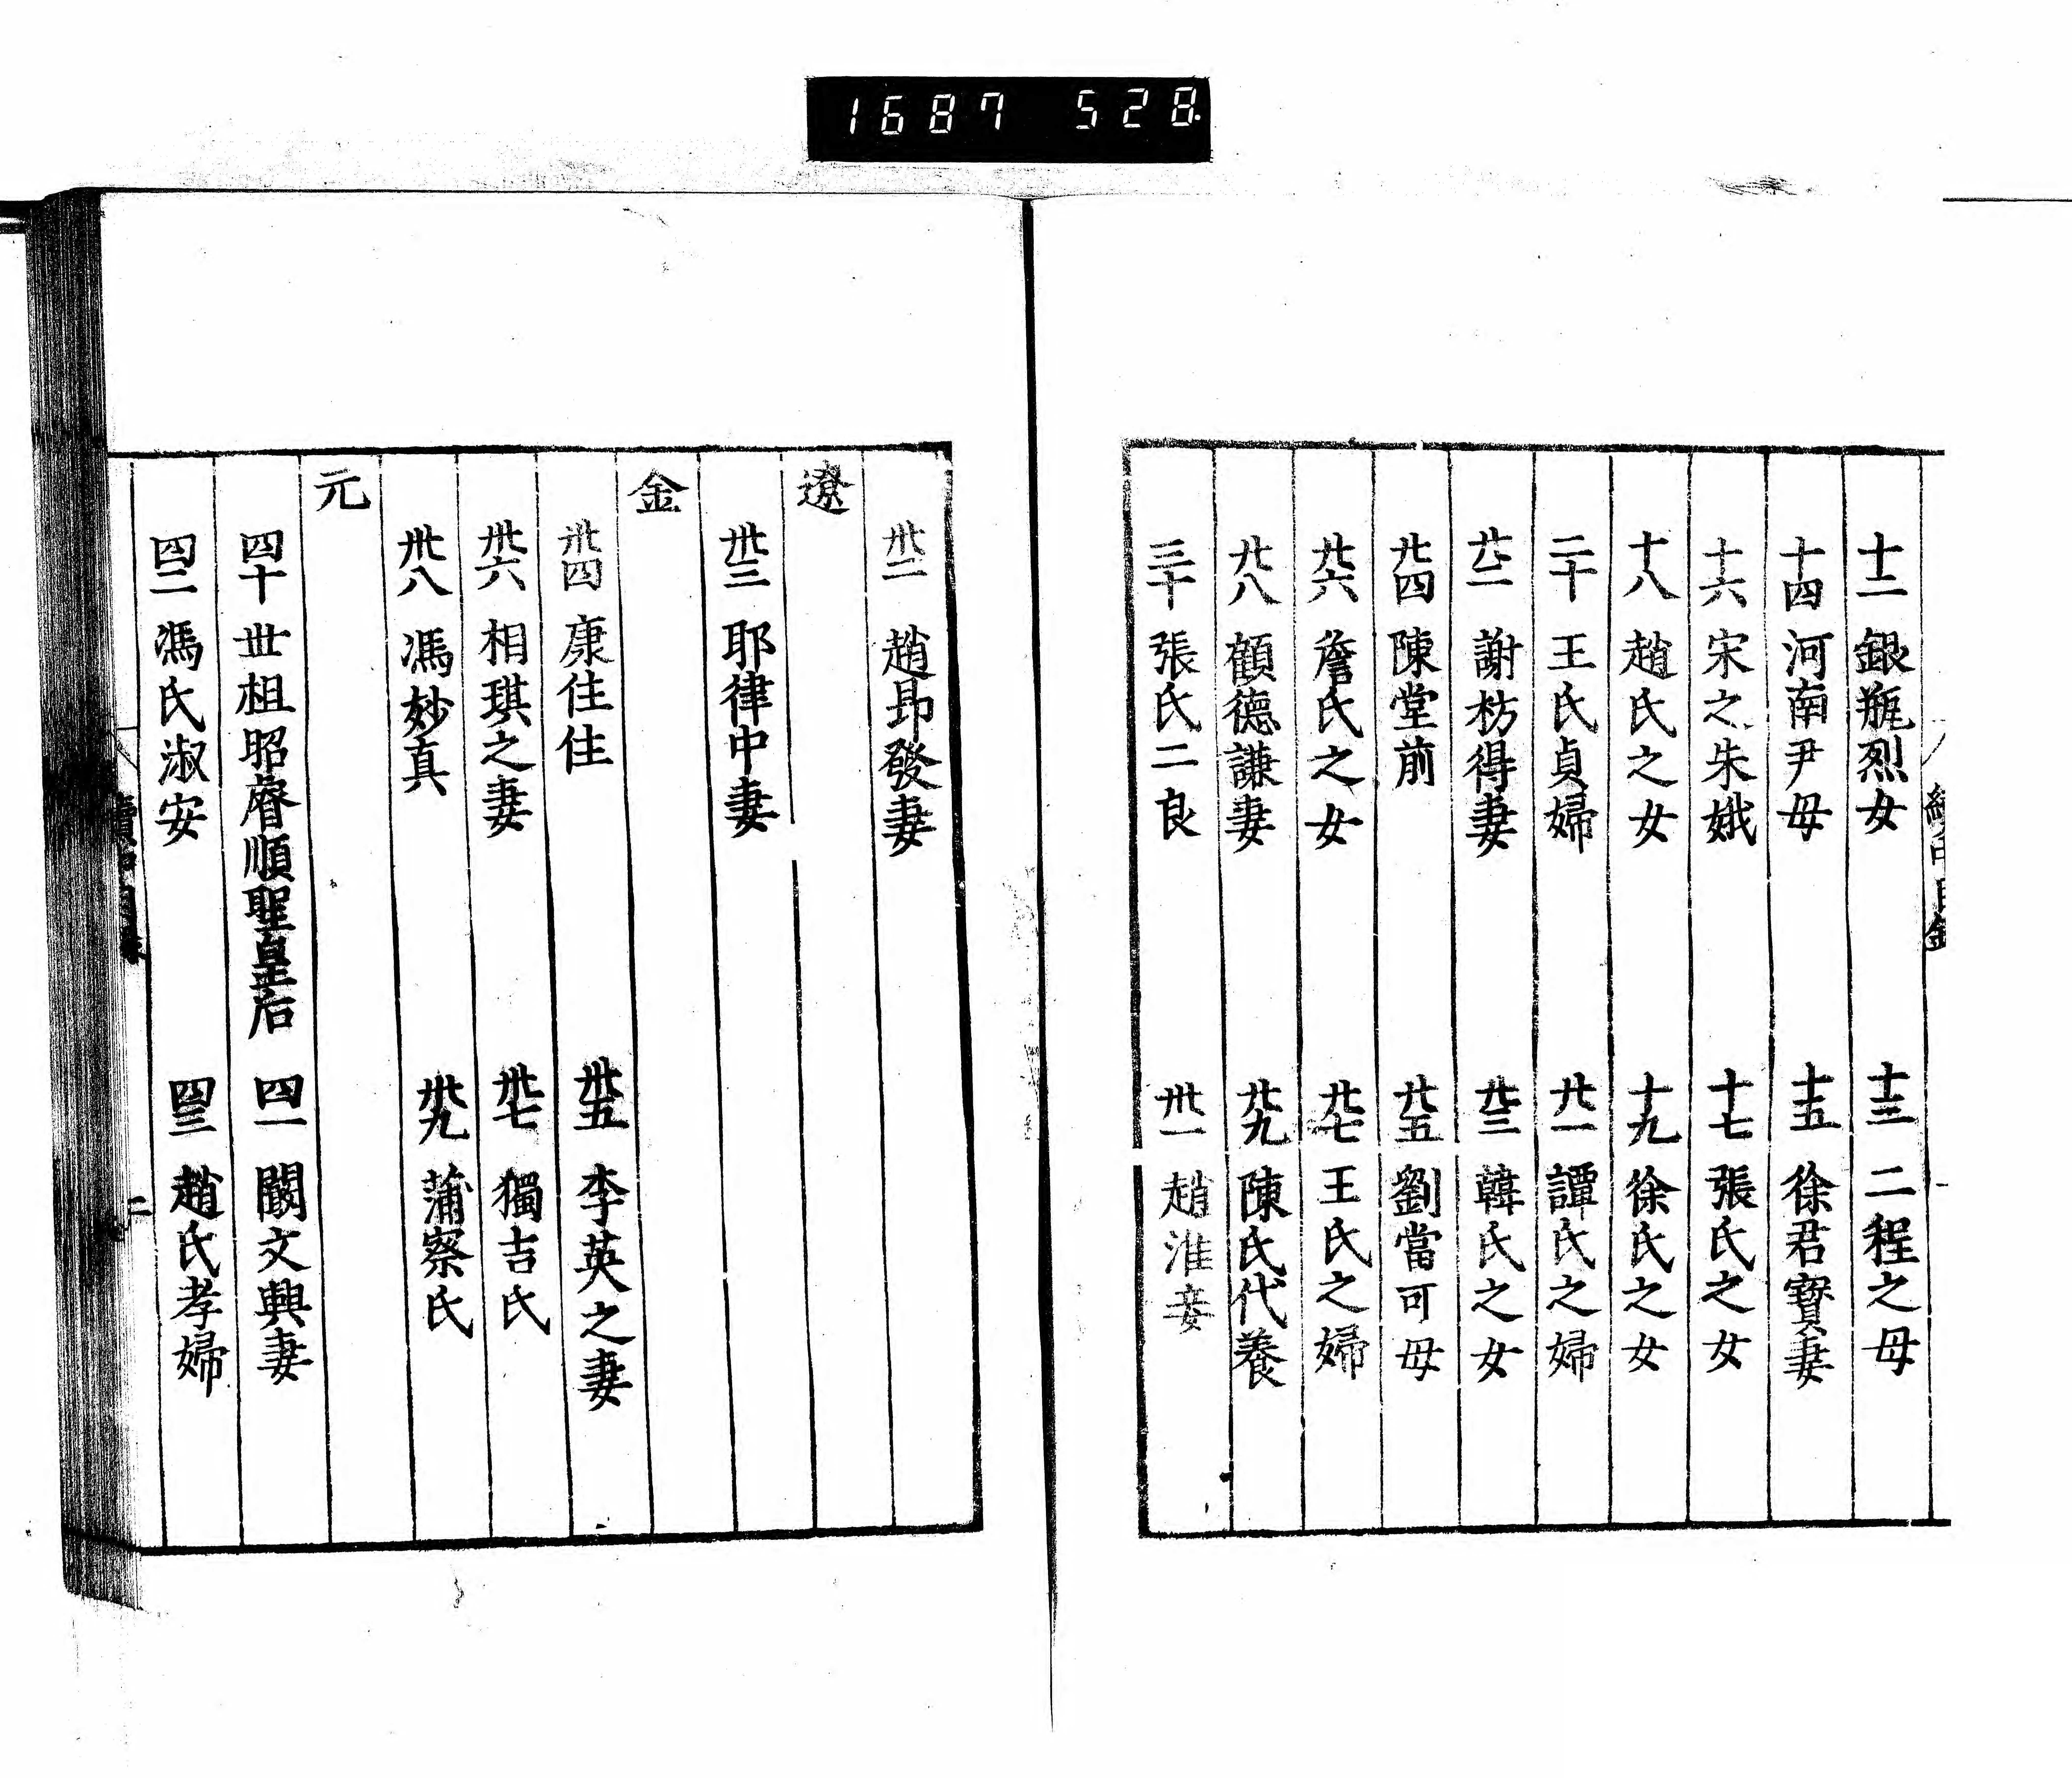 1687 528
十二 銀瓶烈女 十三 二程之母
十四 河南尹母 十五 徐君寶妻
十六 宋之朱娥 十七 張氏之女
十八 趙氏之女 十九 徐氏之女
二十 王氏貞婦 廿一 譚氏之婦
廿二 謝枋得妻 廿三 韓氏之女
廿四 陳堂前 廿五 劉當可母
廿六 詹氏之女 廿七 王氏之婦
廿八 顧德謙妻 廿九 陳氏代養
三十 張氏二良 卅一 趙淮妾
卅二 趙昂發妻
遼
卅三 耶律中妻
金
卅四 康住住 卅五 李英之妻
卅六 相琪之妻 卅七 獨吉氏
卅八 馮妙真 卅九 蒲察氏
元
四十 丗祖昭睿順聖皇后 四一 闞文興妻
四二 馮氏淑安 四三 趙氏孝婦
二